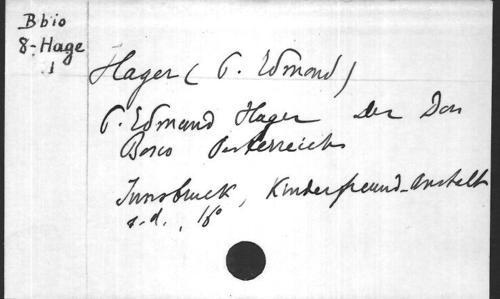 Bbio
8-Hage
1
Hager ( P. Edmond )
P. Edmund Hager Der Don
Bosco Oesterreichs
Innsbruck, Kinderfreund-Anstalt
s.d., 16°